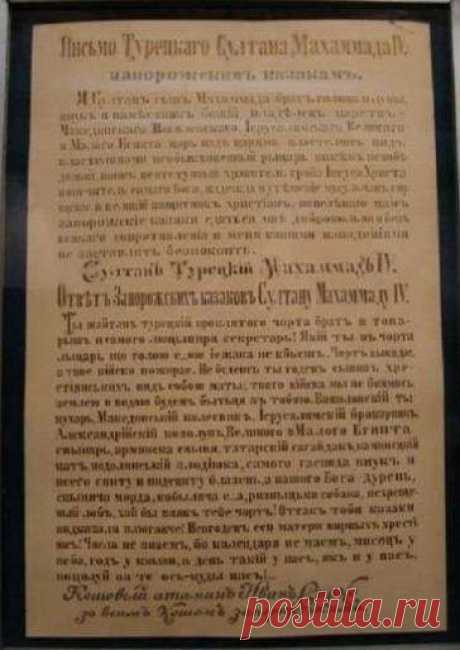 Письмо Турецкаго Султана Махаммада IV.
запорожскимъ казакамъ.
Я Султанъ сынъ Мухаммада братъ солнца и луны,
внукъ и намѣстникъ божій, владѣлецъ царствъ -
Македонскаго Вавилонскаго, Іерусалимскаго Великаго
и Малаго Египта царь надъ царями властелинъ надъ
властелинами необыкновенный рыцарь никѣмъ непобѣ-
димый воинъ неотступный хранитель гроба Іисуса Христа
попечитель самаго Бога, надежда и утѣшеніе мусульманъ,
и великій защитникъ христіанъ, повелѣваю вамъ
запорожскіе казаки сдаться мнѣ добровольно и безъ
всякаго сопротивленія и меня вашими нападеніями
не заставлять безпокоить.
Султанъ Турецкій Махаммадъ IV.
Отвѣтъ Запорожскихъ казаковъ Султану Махаммаду IV.
Ты шайтанъ турецкій проклятого чорта братъ и това-
рышъ и самого люципира секретарь! Якій ты въ чорта
лыцарь що голою с..кою їежака не вбъешъ. Чортъ выкыдае,
а твое війско пожирае. Не будешъ ты годенъ сынивъ хре-
стіянськихъ пидъ собою маты; твого війска мы не боимось
землею и водою будем бытьця зъ тобою. Вавилонскій ты
кухарь, Македонській колесникъ, Іерусалимскій броварникъ,
Александрійскій козолупъ, Великого и Малого Египта
свынарь, армянска свыня, татарскій сагайдакъ, каменскій
катъ, подолянській злодіюка, самого гаспида внукъ и
всего свиту и подсвиту блазень, а нашого Бога дурень,
свыняча морда, кобыляча с..а, ризныцька собака, нехрещен-
ный лобъ, хай бы взявъ тебе чортъ! Оттакъ тоби казаки
видказали плюгавче! Невгоденъ еси матери вирныхъ хресті
янъ! Числа не знаемъ, бо календаря не маемъ, мисяць у
неби, годъ у книзи, а день такій у насъ, якъ и у васъ,
поцилуй за те ось-куды насъ!..
Кошовый атаманъ Иванъ Сирко
зо всимъ Кошомъ